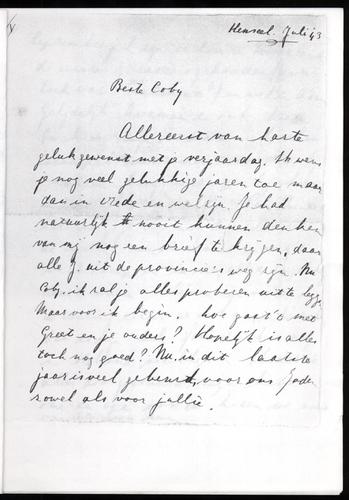 Hensel. Juli '43
Beste Coby
Allereerst van harte
gelukgewenst met je verjaardag. Ik wens
je nog veel gelukkige jaren toe maar
dan in vrede en welzijn. Je had
natuurlijk nooit kunnen denken
van mij nog een brief te krijgen, daar
alle J. uit de provincie's weg zijn. Nu
Coby. ik zal je alles proberen uit te leggen
Maar voor ik begin. hoe gaat 't met
Greet en je ouders? Hopelijk is alles
toch nog goed? Nu. in dit laatste
jaar is veel gebeurd, voor ons Joden
zowel als voor jullie.